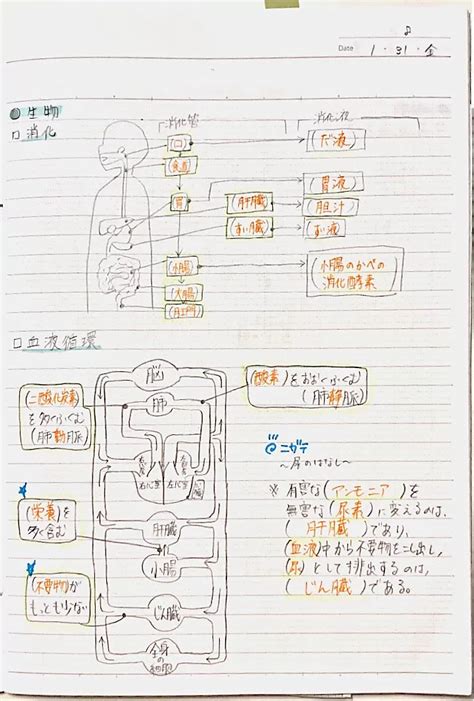 Date 1 · 31 · 金
生物
消化
消化管
消化液
(口)
(だ液)
(食道)
(胃)
(胃液)
(肝臓)
(胆汁)
(すい臓)
(すい液)
(小腸)
(小腸のかべの
消化酵素)
(大腸)
(肛門)
血液循環
脳
肺
(二酸化炭素)
を多くふくむ
(肺動脈)
(酸素)をおおくふくむ
(肺静脈)
右心室
左心室
肝臓
小腸
(栄養)を
多く含む
(不要物)が
もっとも少ない
じん臓
全身
の細胞
ニガテ
〜尿のはなし〜
※ 有害な(アンモニア)を
無害な(尿素)に変えるのは、
(肝臓)であり、
(血液)中から不要物をこし出し、
(尿)として排出するのは、
(じん臓)である。